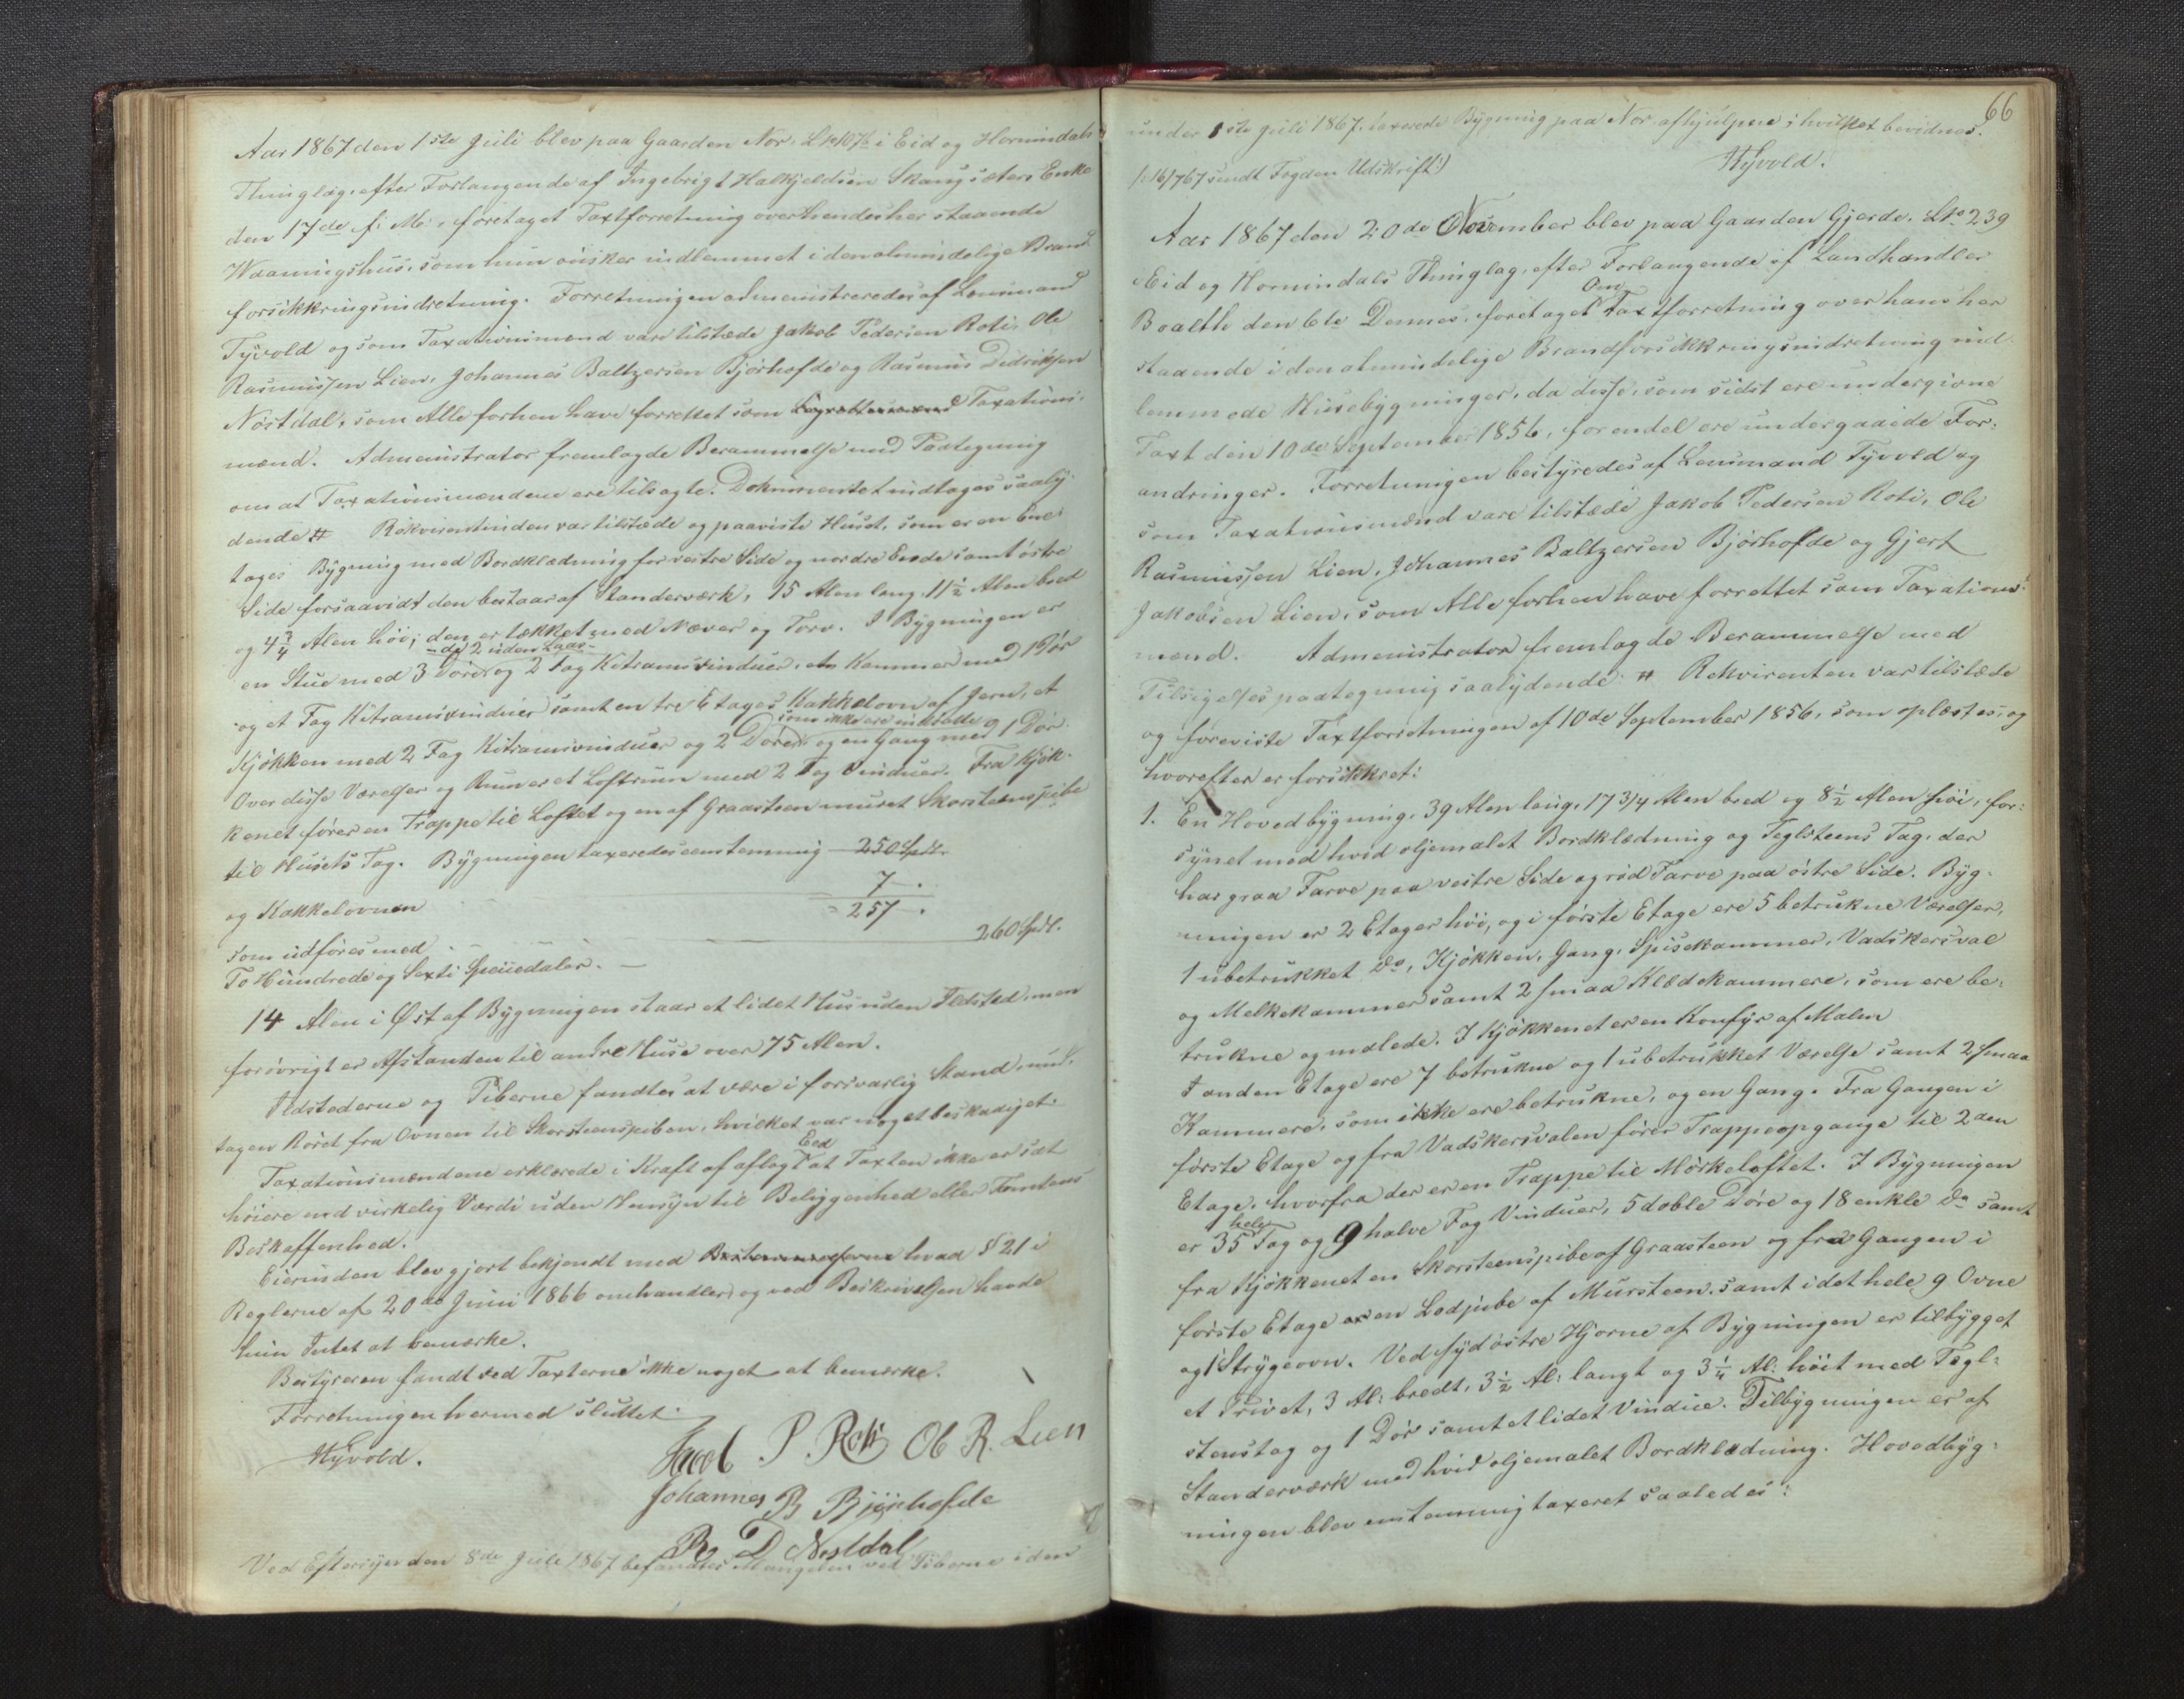 Aar 1867 den 1ste Juli blev paa Gaarden Nor, i Eid og Hornindals
Thinglag, efter Forlangende af Ingebrigt Halkjeldsen Skaugsæters Enke
den 17de f: M:, foretaget Taxtforretning over hendes her staaende
Waaningshus, som hun ønsker indlemmet i den almindelige Brand-
forsikkringsindretning. Forretningen administreredes af Lensmand
Tyvold og som Taxationsmænd vare tilstæde Jakob Pedersen Roti, Ole
Rasmussen Lien, Johannes Baltzersen Bjørhofde og Rasmus Didriksen
Nøstdal, som Alle forhen have forrettet som Taxations-
mænd. Administrator fremlagde Berammelse med Paategning
om at Taxationsmændene ere tilsagte. Dokumentet indtages saaly-
dende # Rekvirentinden var tilstæde og paaviste Huset, som er en Een
tages Bygning med Bordklædning for vestre Side og nordre Ende samt østre
Side forsaavidt den bestaar af Standerværk, 15 Alen lang, 11½ Alen bred
og 4¾ Alen høi; den er tækket med Næver og Torv. I Bygningen er
- de 2 uden Laas -
en Stue med 3 Døre og 2 Fag Kitramsvinduer, et Kammer med 1 Dør
og et Fag Kitramsvinduer samt en tre Etages Kakkelovn af Jern, et
som ikke ere indsatte
Kjøkken med 2 Fag Kitramsvinduer og 2 Døre og en Gang med 1 Dør.
Over disse Værelser og Rum er et Loftrum med 2 Fag Vinduer. Fra Kjøk-
kenet fører en Trappe til Loftet og en af Graasteen muret Skorsteenspibe
til Husets Tag. Bygningen taxeredes eenstemmig 250 Spdlr.
og Kakkelovnen 7 .
257 .
som udføres med 260 Spdl.
To Hundrede og Sexti Speciedaler. —
14 Alen i Øst af Bygningen staar et lidet Hus uden Ildsted, men
forøvrigt er Afstanden til andre Huse over 75 Alen.
Ildstederne og Piberne fandtes at være i forsvarlig Stand, und-
tagen Røret fra Ovnen til Skorsteenspiben, hvilket var noget beskadiget.
Eed
Taxationsmændene erklærede i Kraft af aflagt at Taxten ikke er sat
høiere end virkelig Værdi uden Hensyn til Beliggenhed eller Tomtens
Beskaffenhed.
Eierinden blev gjort bekjendt med hvad § 21 i
Reglerne af 20de Juni 1866 omhandler, og ved Beskrivelsen havde
hun Intet at bemærke.
Bestyreren fandt ved Taxterne ikke noget at bemærke.
Forretningen hermed sluttet.
HTyvold.
Jacob P. Roti Ole R. Lien
Johannes B Bjørhofde
R D Nøstdal
Ved Eftersyn den 8de Juli 1867 befandtes Manglen ved Piberne i den
66
under 1ste Juli 1867 taxerede Bygning paa Nor afhjulpne; hvilket bevidnes.
HTyvold.
/: 16/7 67 sendt Fogden Udskrift :/
Aar 1867 den 20de November blev paa Gaarden Gjerde, Lno 239
Eid og Hornindals Thinglag, efter Forlangende af Landhandler
Om
Boalth den 6te Dennes, foretaget Taxtforretning over hans her
staaende i den almindelige Brandforsikkringsindretning ind-
lemmede Husebygninger, da disse, som sidst ere undergivne
Taxt den 10de September 1856, forendel ere undergaaede For-
andringer. Forretningen bestyredes af Lensmand Tyvold og
som Taxationsmænd vare tilstæde Jakob Pedersen Roti, Ole
Rasmussen Lien, Johannes Baltzersen Bjørhofde og Gjert
Jakobsen Lien, som Alle forhen have forrettet som Taxations-
mænd. Administrator fremlagde Berammelse med
Tilsigelsespaategning saalydende: # Rekvirenten var tilstæde
og foreviste Taxtforretningen af 10de September 1856, som oplæstes, og
hvorefter er forsikkret:
1. En Hovedbygning, 39 Alen lang, 17 3/4 Alen bred og 8½ Alen høi, for-
synet med hvid oljemalet Bordklædning og Teglsteens Tag, der
har graa Farve paa vestre Side og rød Farve paa østre Side. Byg-
ningen er 2 Etager høi, og i første Etage ere 5 betrukne Værelser,
1 ubetrukket do, Kjøkken, Gang, Spisekammer, Vadskersval
og Melkekammer samt 2 smaa Klædekammere, som ere be-
trukne og malede. I Kjøkkenet er en Komfyr af Malm
I anden Etage ere 7 betrukne og 1 ubetrukket Værelse samt 2 smaa
Kammere, som ikke ere betrukne, og en Gang. Fra Gangen i
første Etage og fra Vadskersvalen fører Trappeopgange til 2den
Etage, hvorfra der er en Trappe til Mørkeloftet. I Bygningen
hele
er 35 Fag og 9 halve Fag Vinduer, 5 doble Døre og 18 enkle do samt
fra Kjøkkenet en Skorsteenspibe af Graasteen og fra Gangen i
første Etage er en Lodpibe af Mursteen, samt i det hele 9 Ovne
og 1 Strygeovn. Ved sydøstre Hjørne af Bygningen er tilbygget
et Privet, 3 Al: bredt, 3½ Al: langt og 3¼ Al: høit med Tegl-
stenstag og 1 Dør samt et lidet Vindue. Tilbygningen er af
Standerværk med hvid oljemalet Bordklædning. Hovedbyg-
ningen blev enstemmig taxeret saaledes: